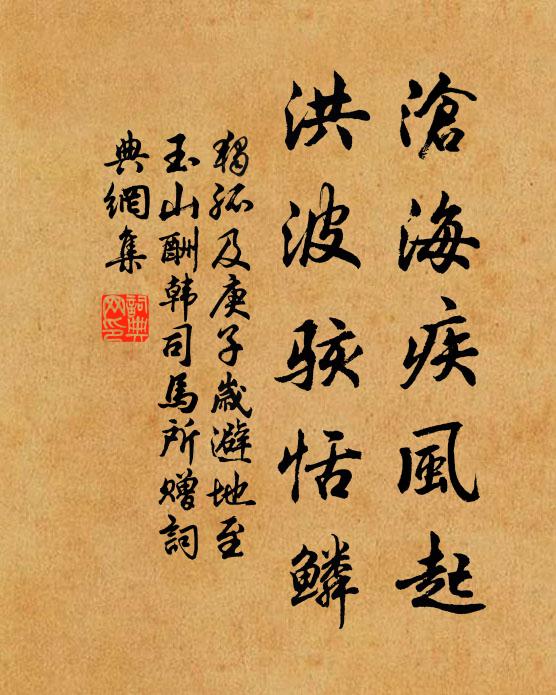 滄海疾風起
洪波駭恬鱗
獨孤及庚子歲避地至
玉山酬韓司馬所贈詞
典網集
詞典網印